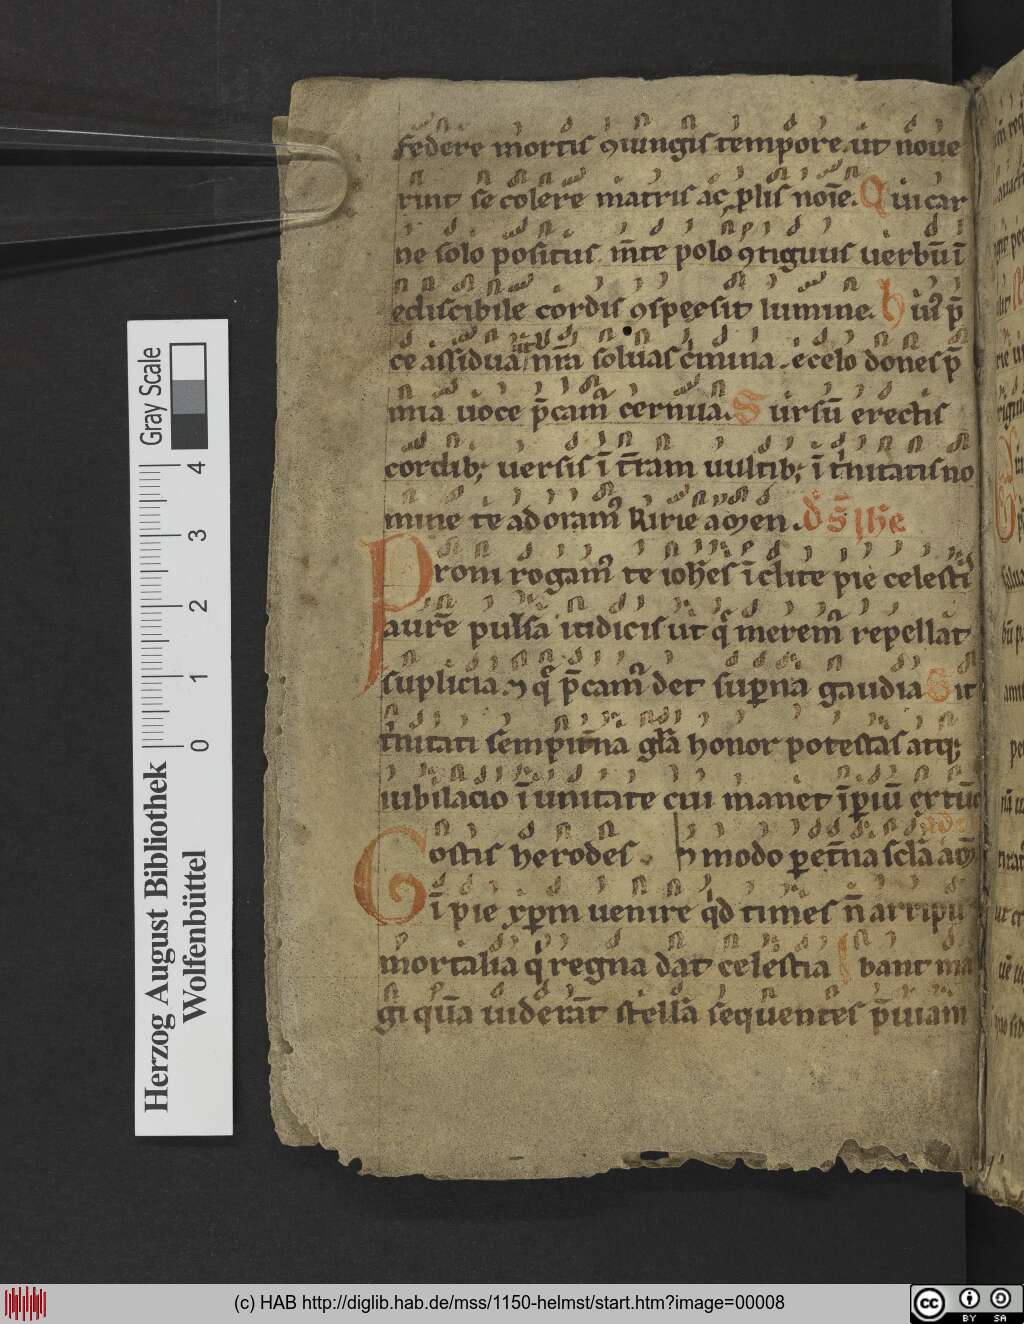 federe mortis ꝯiungis tempore. ut noue
rint se colere matris ac ꝓlis noīe. Qui in car
ne solo positus m̄te polo ꝯtiguus uerbū ī
ediscibile cordis ꝯspexsit lumine. huiꝰ p̄
ce assidua nr̄a soluas c̄mina. e celo dones p̄
mia uoce p̄camꝰ cernua. Sursū erectis
cordib; uersis ī t̄ram uultib; ī t̍nitatis no
mine te adoramꝰ kirie amen. de S Ihe
Proni rogamꝰ te ioh̄es īclite pie celesti
aure pulsa iudicis ut q̄ meremꝰ repellat
suplicia. ⁊ q̄ p̄camꝰ det supna gaudia Sit
t̍nitati sempit̄na glā honor potestas atq;
iubilacio ī unitate cui manet īperiū
Hostis herodes modo ꝑet̄na
ī pie xp̄m uenire q̍d times n̄ arripit
mortalia q̍ regna dat celestia Ibant ma
gi quā uiderāt stellā sequentes p̄uiam
Gray Scale
0 1 2 3 4
Herzog August Bibliothek
Wolfenbüttel
(c) HAB http://diglib.hab.de/mss/1150-helmst/start.htm?image=00008
cc BY SA